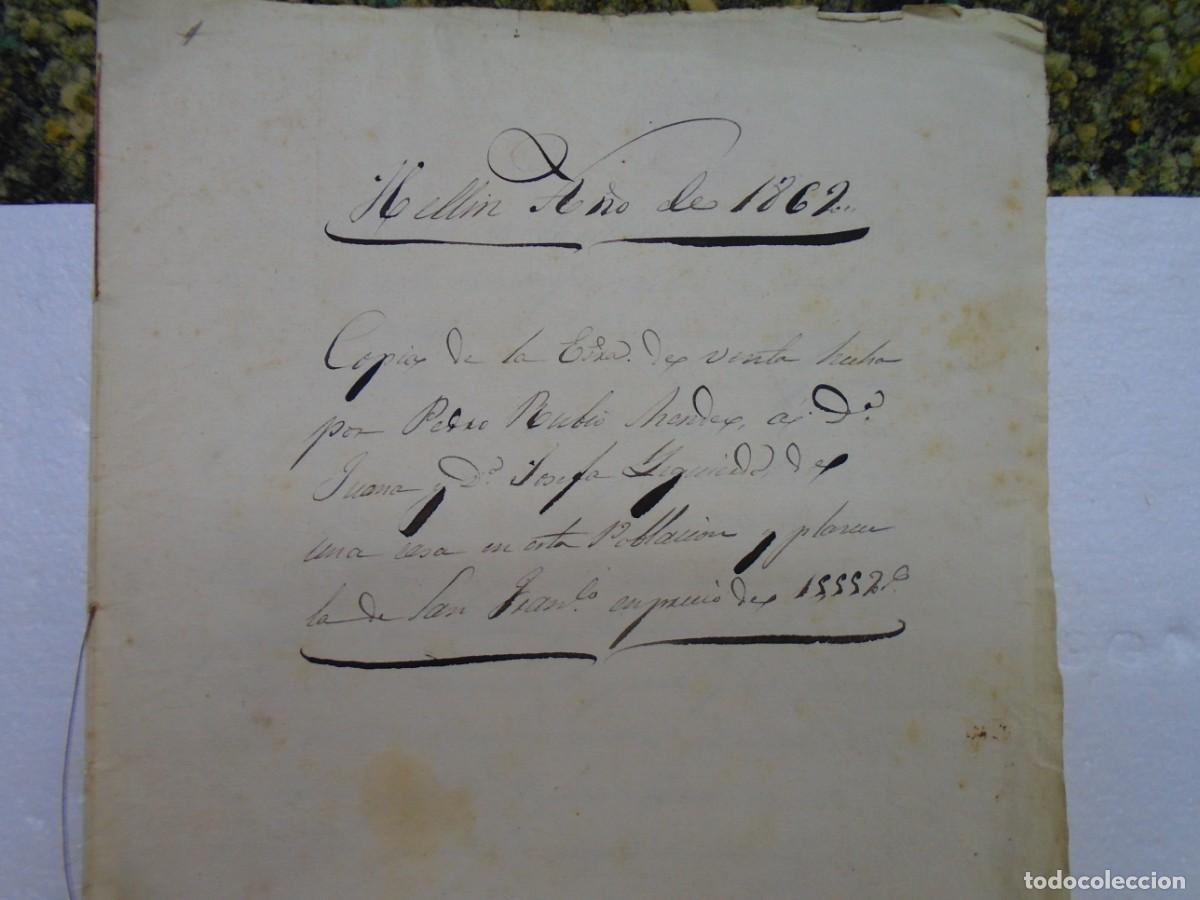 Hellin Año de 1862
Copia de la Essra. de venta hecha
por Pedro Rubio Mendez, á D.ª
Juana y D.ª Josefa Yzquierdo, de
una casa en esta Poblacion y placeu
la de San Fran.co en precio de 15,552 r.s
todocoleccion